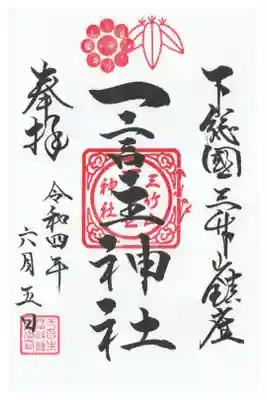 下総國三竹山鎮座
一言主神社
三竹
神社
奉拝
令和四年
六月五日